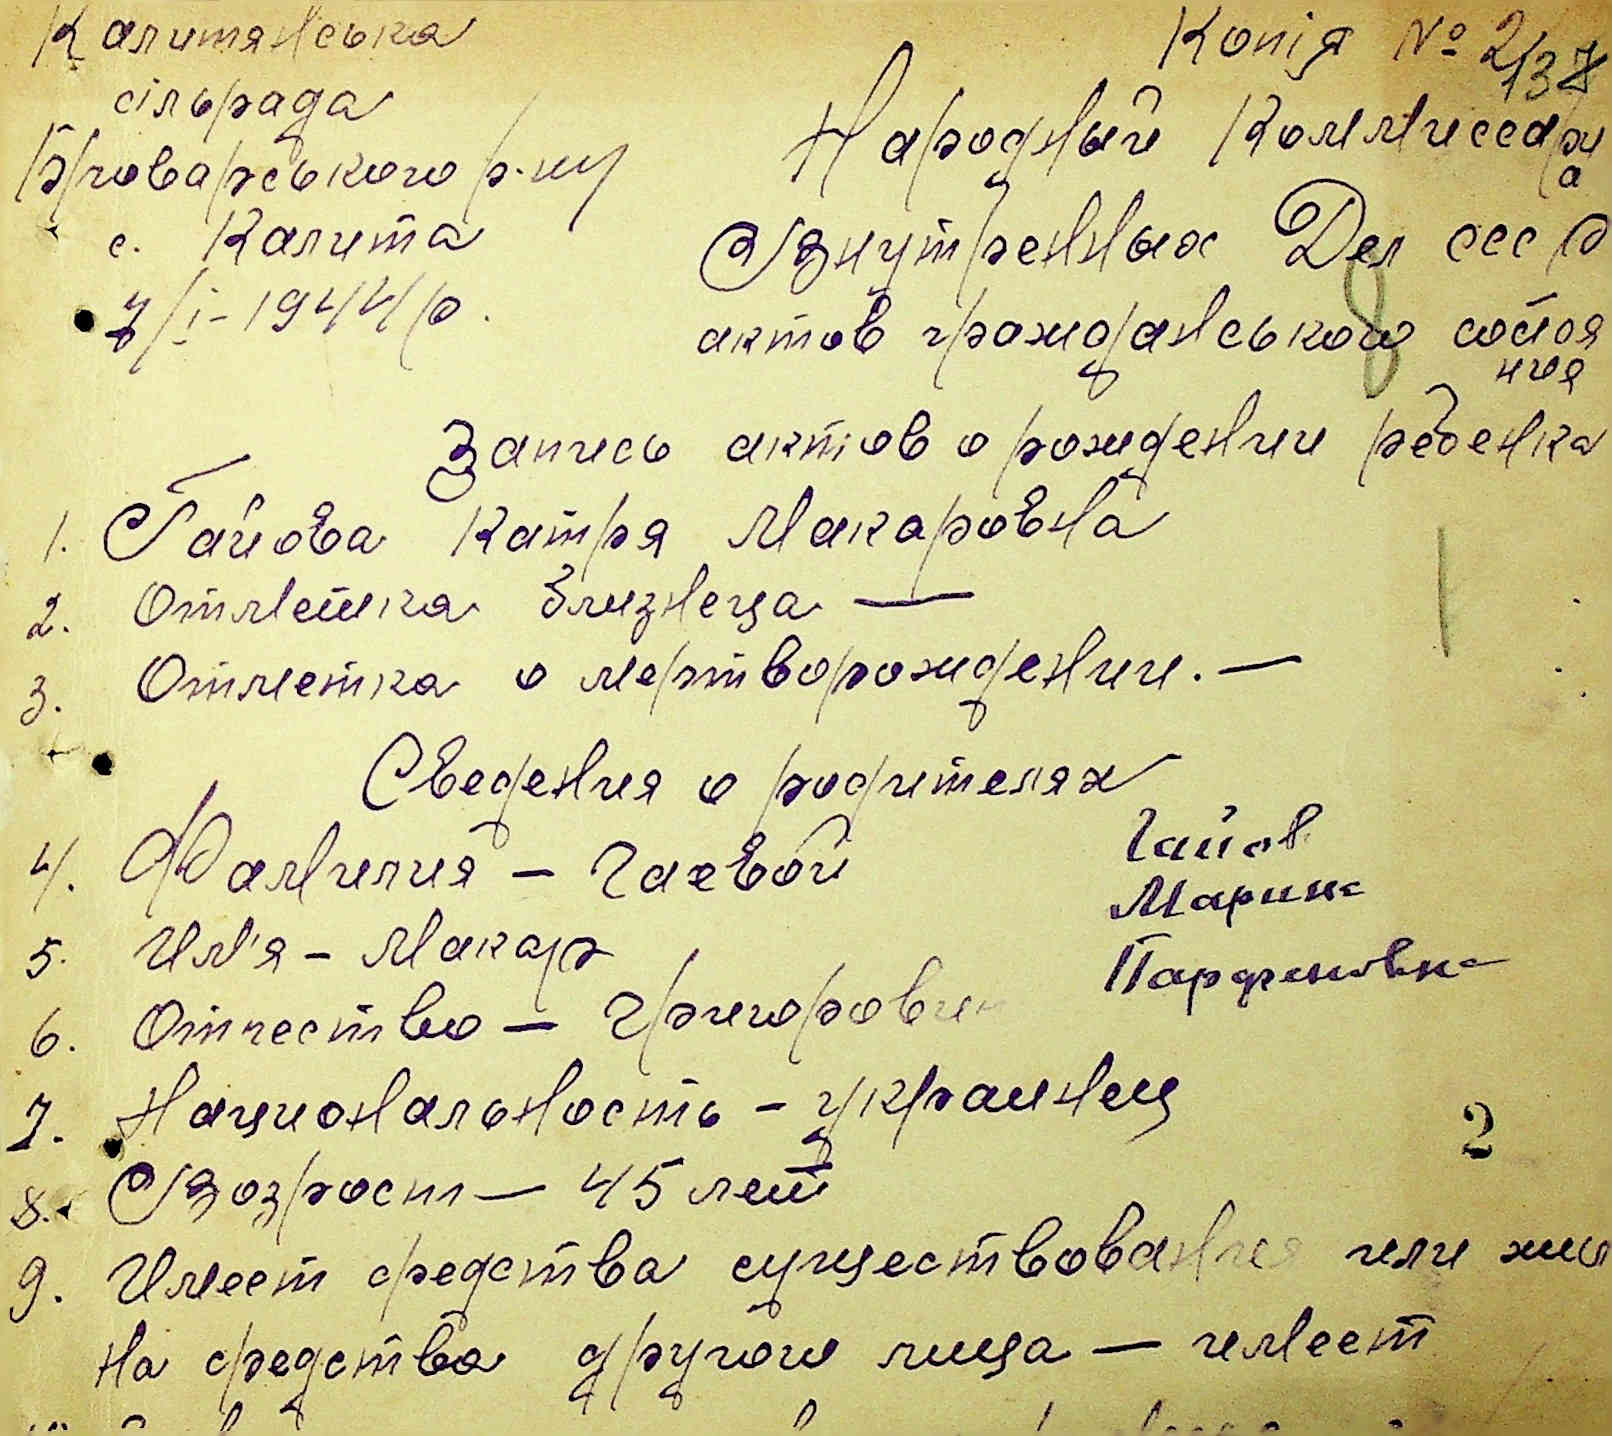 Калитянська
сільрада
Броварського р-ну
с. Калита
7/І-1944 р.
Копія № 2
137
Народный Коммиссариа
Внутренных Дел СССР
актов гражданського состоя
ния
Запись актов о рождении ребенка
1. Гайова Катря Макаровна
2. Отметка близнеца —
3. Отметка о мертворождении. —
Сведения о родителях
4. Фамилия – Гаевой
Гайов
5. Им'я – Макар
Марина
6. Отчество – Григорович
Парфеновна
7. Национальность – украинец
2
8. Возрост – 45 лет
9. Имеет средства существования или жил
на средства другого лица – имеет